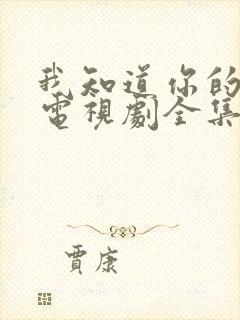 我知道你的
電視劇全集
賈康